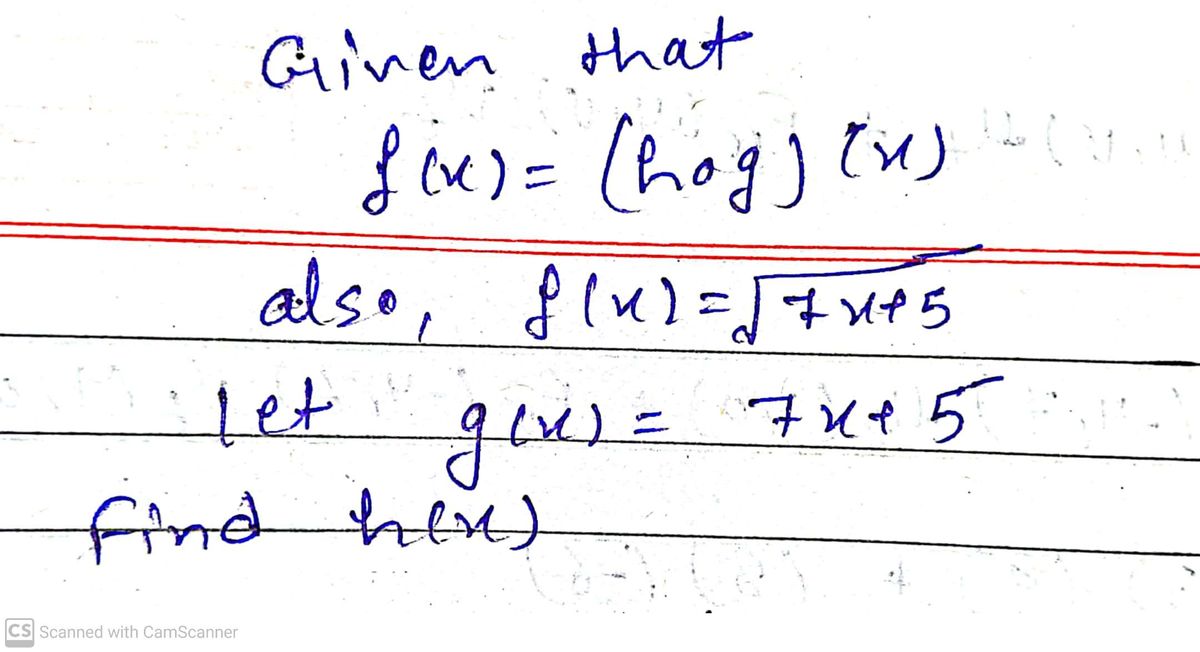 Given that
f(x) = (hog) (x)
also, f(x) = √7x+5
let g(x) = 7x+5
find h(x)
CS Scanned with CamScanner